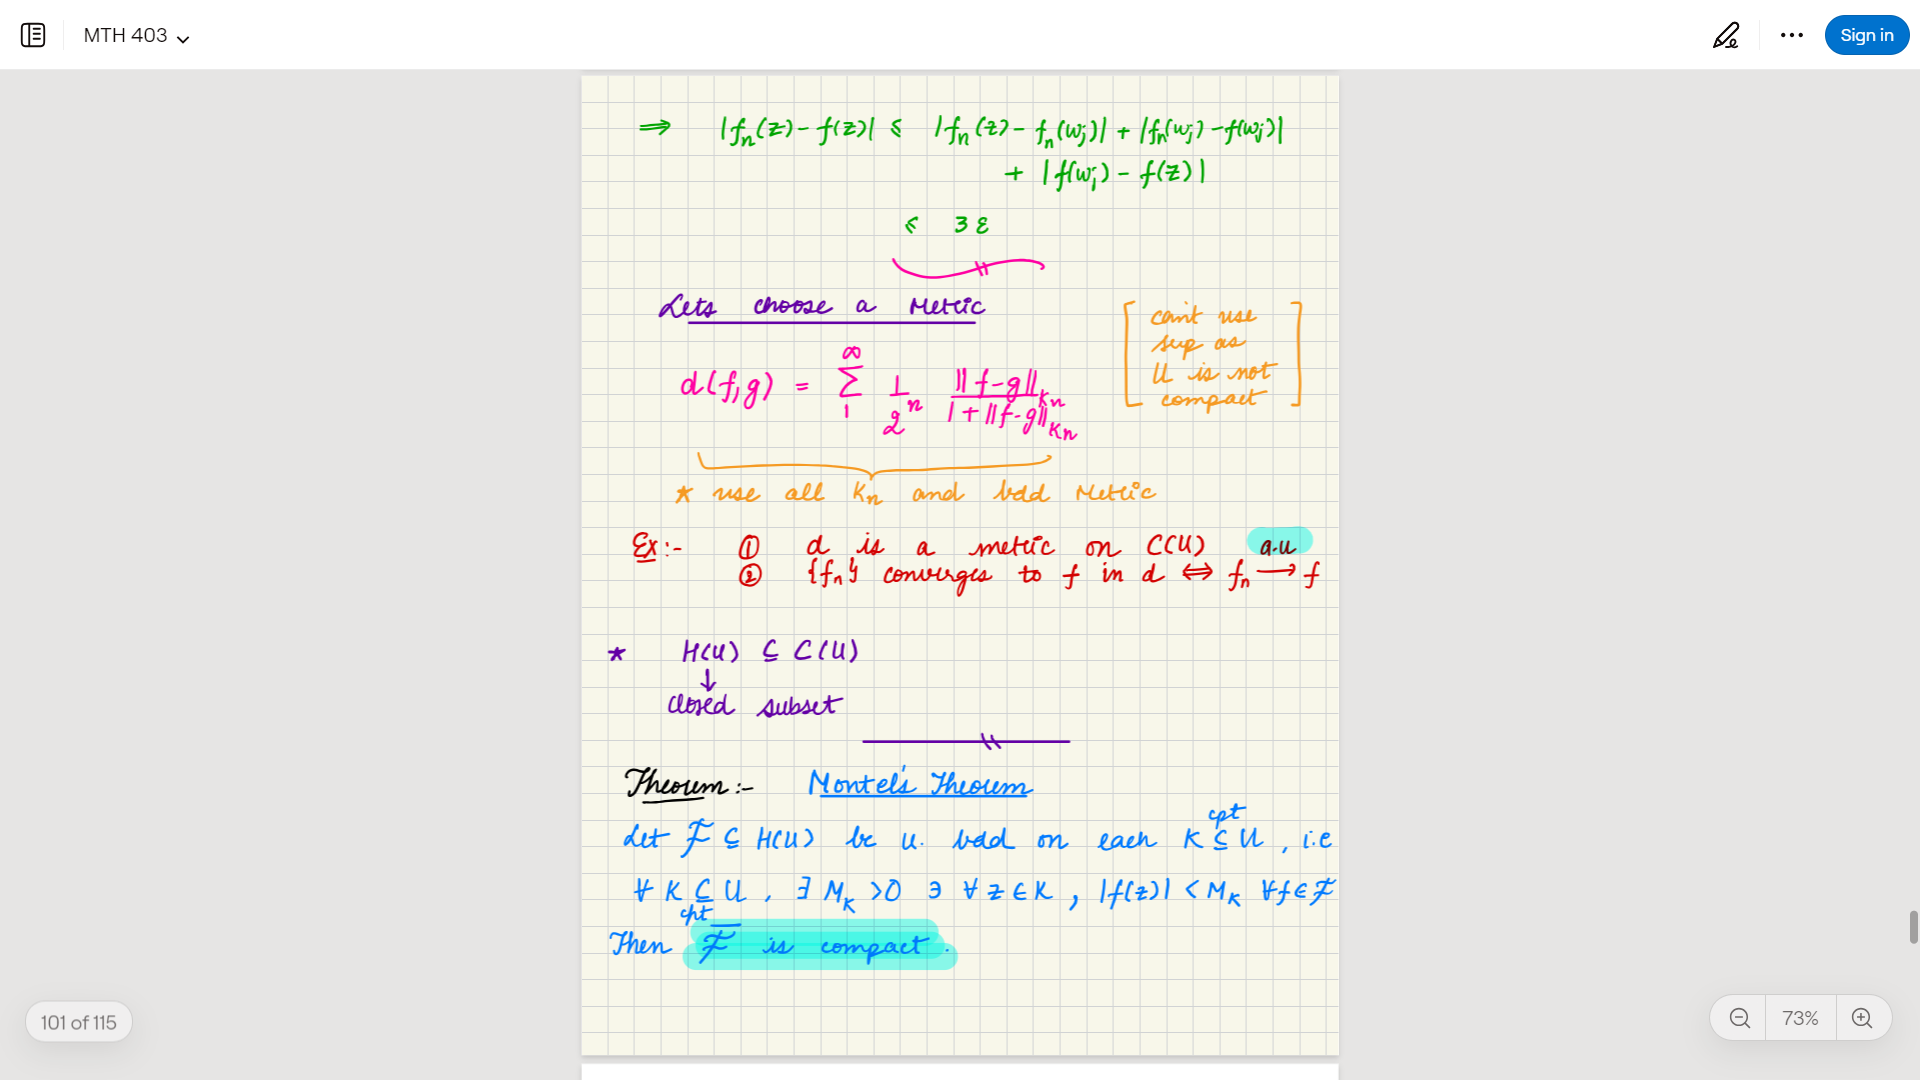 MTH 403
Sign in
⇒ |fn(z) - f(z)| ≤ |fn(z) - fn(wj)| + |fn(wj) - f(wj)|
+ |f(wj) - f(z)|
≤ 3ε
Lets choose a Metric
[can't use
sup as
U is not
compact]
d(f,g) = ∑₁^∞ 1/2^n ||f-g||Kn / 1 + ||f-g||Kn
* use all Kn and bdd Metric
Ex:- ① d is a metric on C(U)
② {fn} converges to f in d ⇔ fn a.u⟶ f
* H(U) ⊆ C(U)
↓
closed subset
Theorem:- Montel's Theorem
Let ℱ ⊆ H(U) be u. bdd on each K ⊆cpt U, i.e
∀ K ⊆cpt U, ∃ MK > 0 ∋ ∀ z ∈ K, |f(z)| < MK ∀ f ∈ ℱ
Then ℱ̅ is compact.
101 of 115
73%